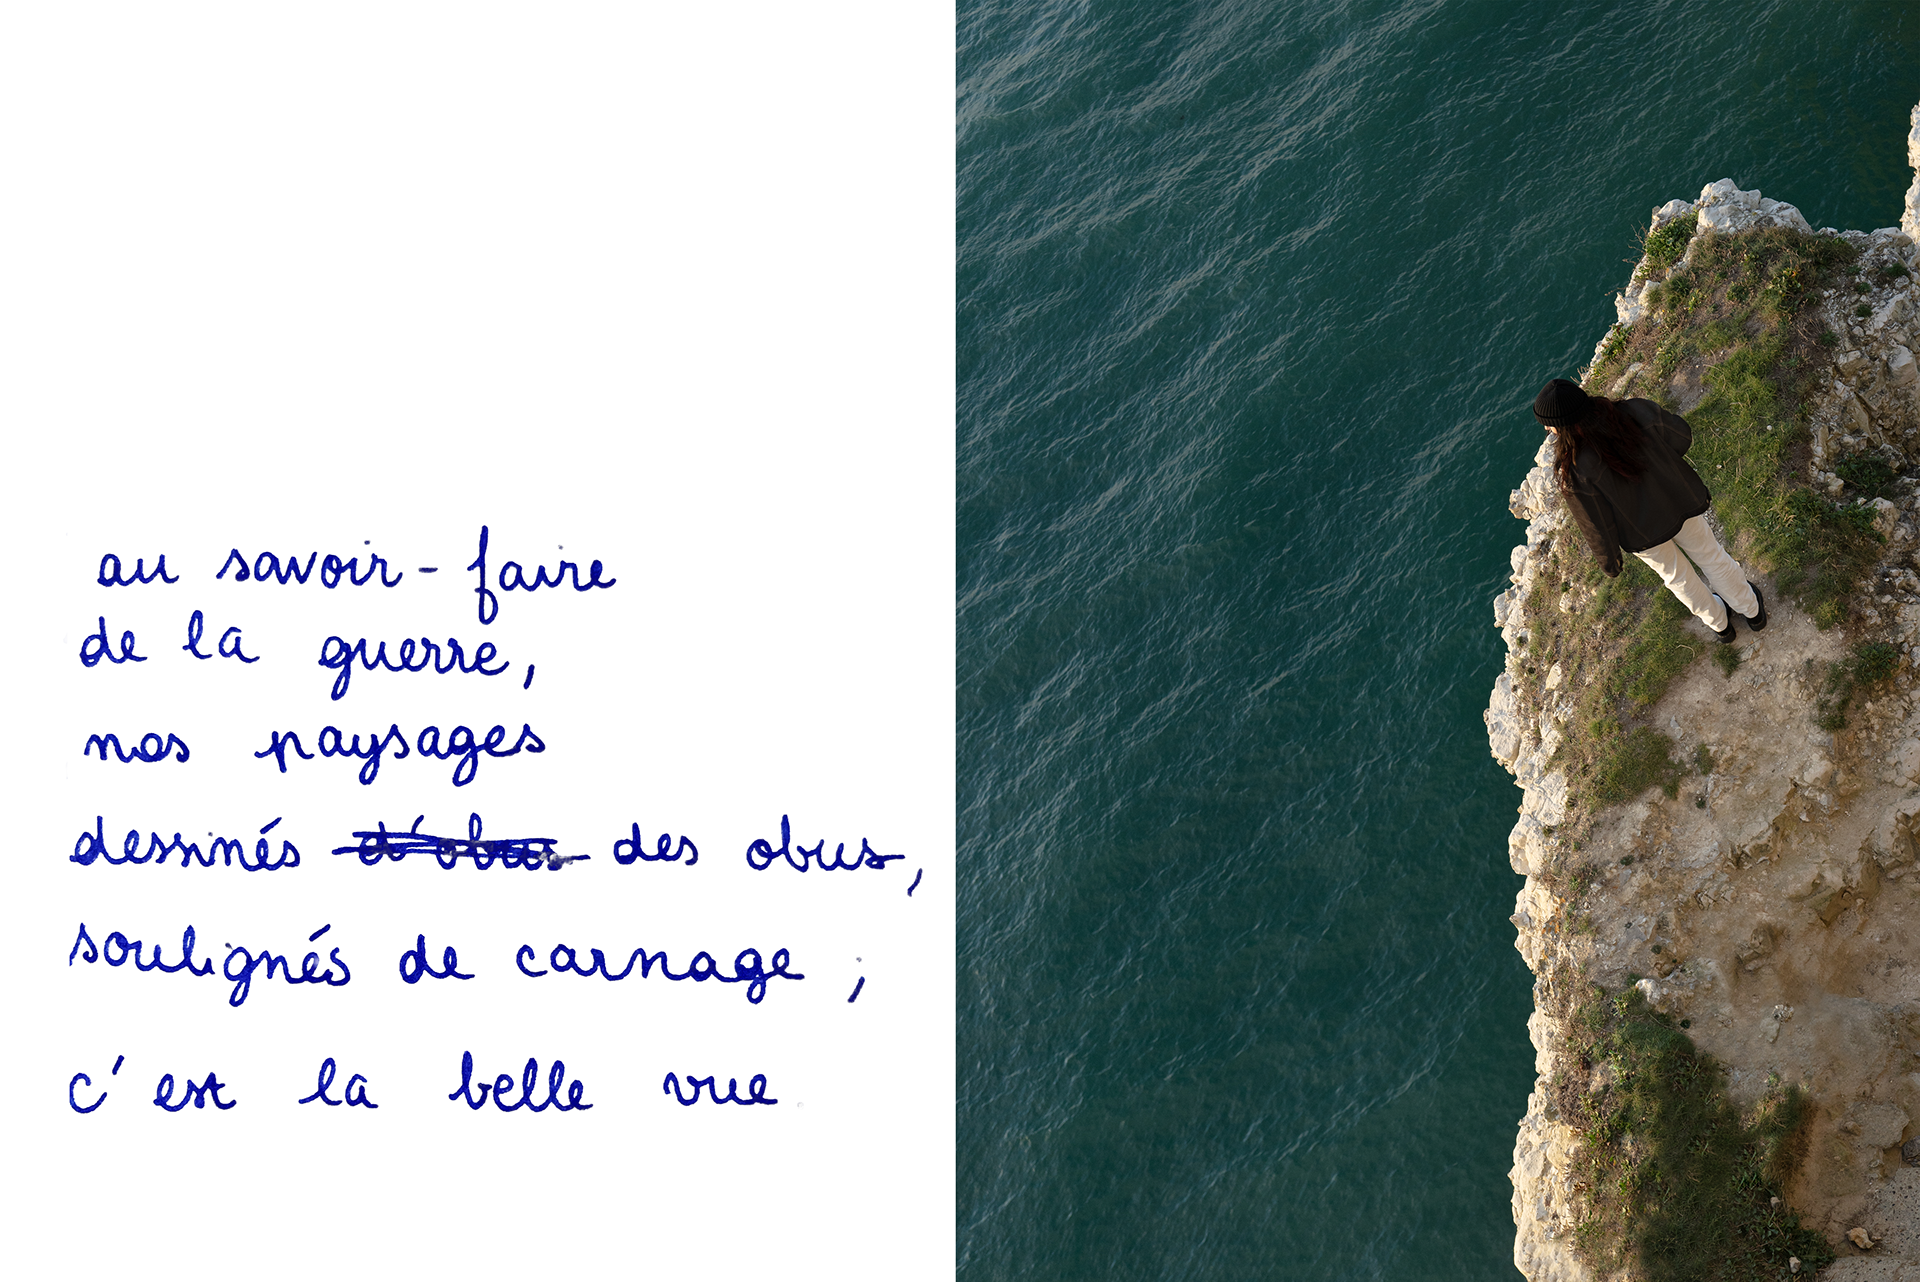 au savoir-faire
de la guerre,
nos paysages
dessinés d'obus des obus,
soulignés de carnage ;
c'est la belle vue